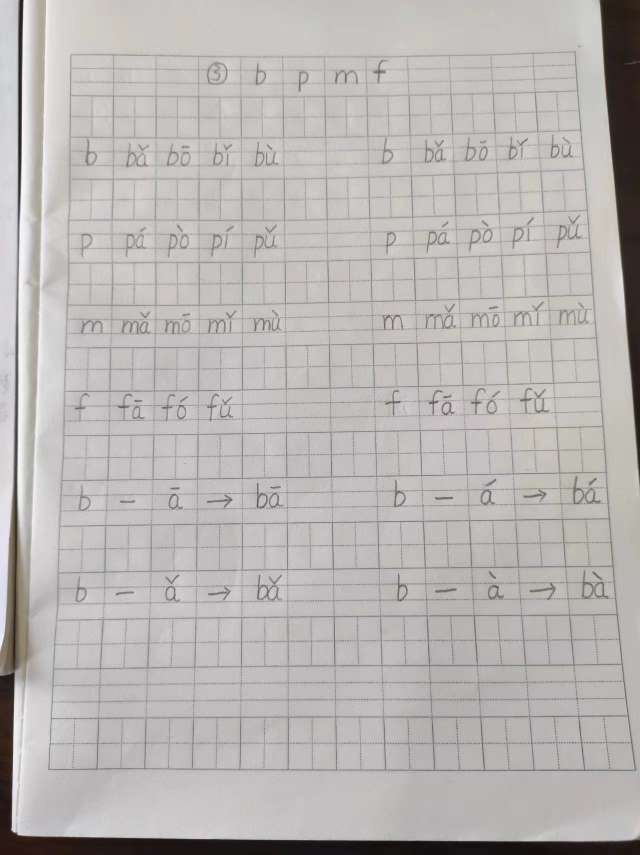 ③ b p m f
b bǎ bō bǐ bù b bǎ bō bǐ bù
p pá pò pí pǔ p pá pò pí pǔ
m mǎ mō mǐ mù m mǎ mō mǐ mù
f fā fó fǔ f fā fó fǔ
b — ā → bā b — á → bá
b — ǎ → bǎ b — à → bà